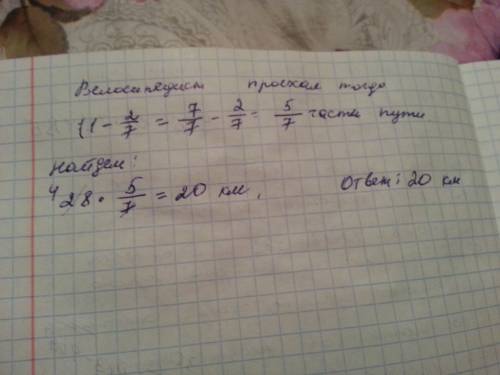 Велосипедист проехал тогда
(1 - 2/7 = 7/7 - 2/7 = 5/7 части пути
найдем:
⁴28 · 5/7 = 20 км, Ответ: 20 км